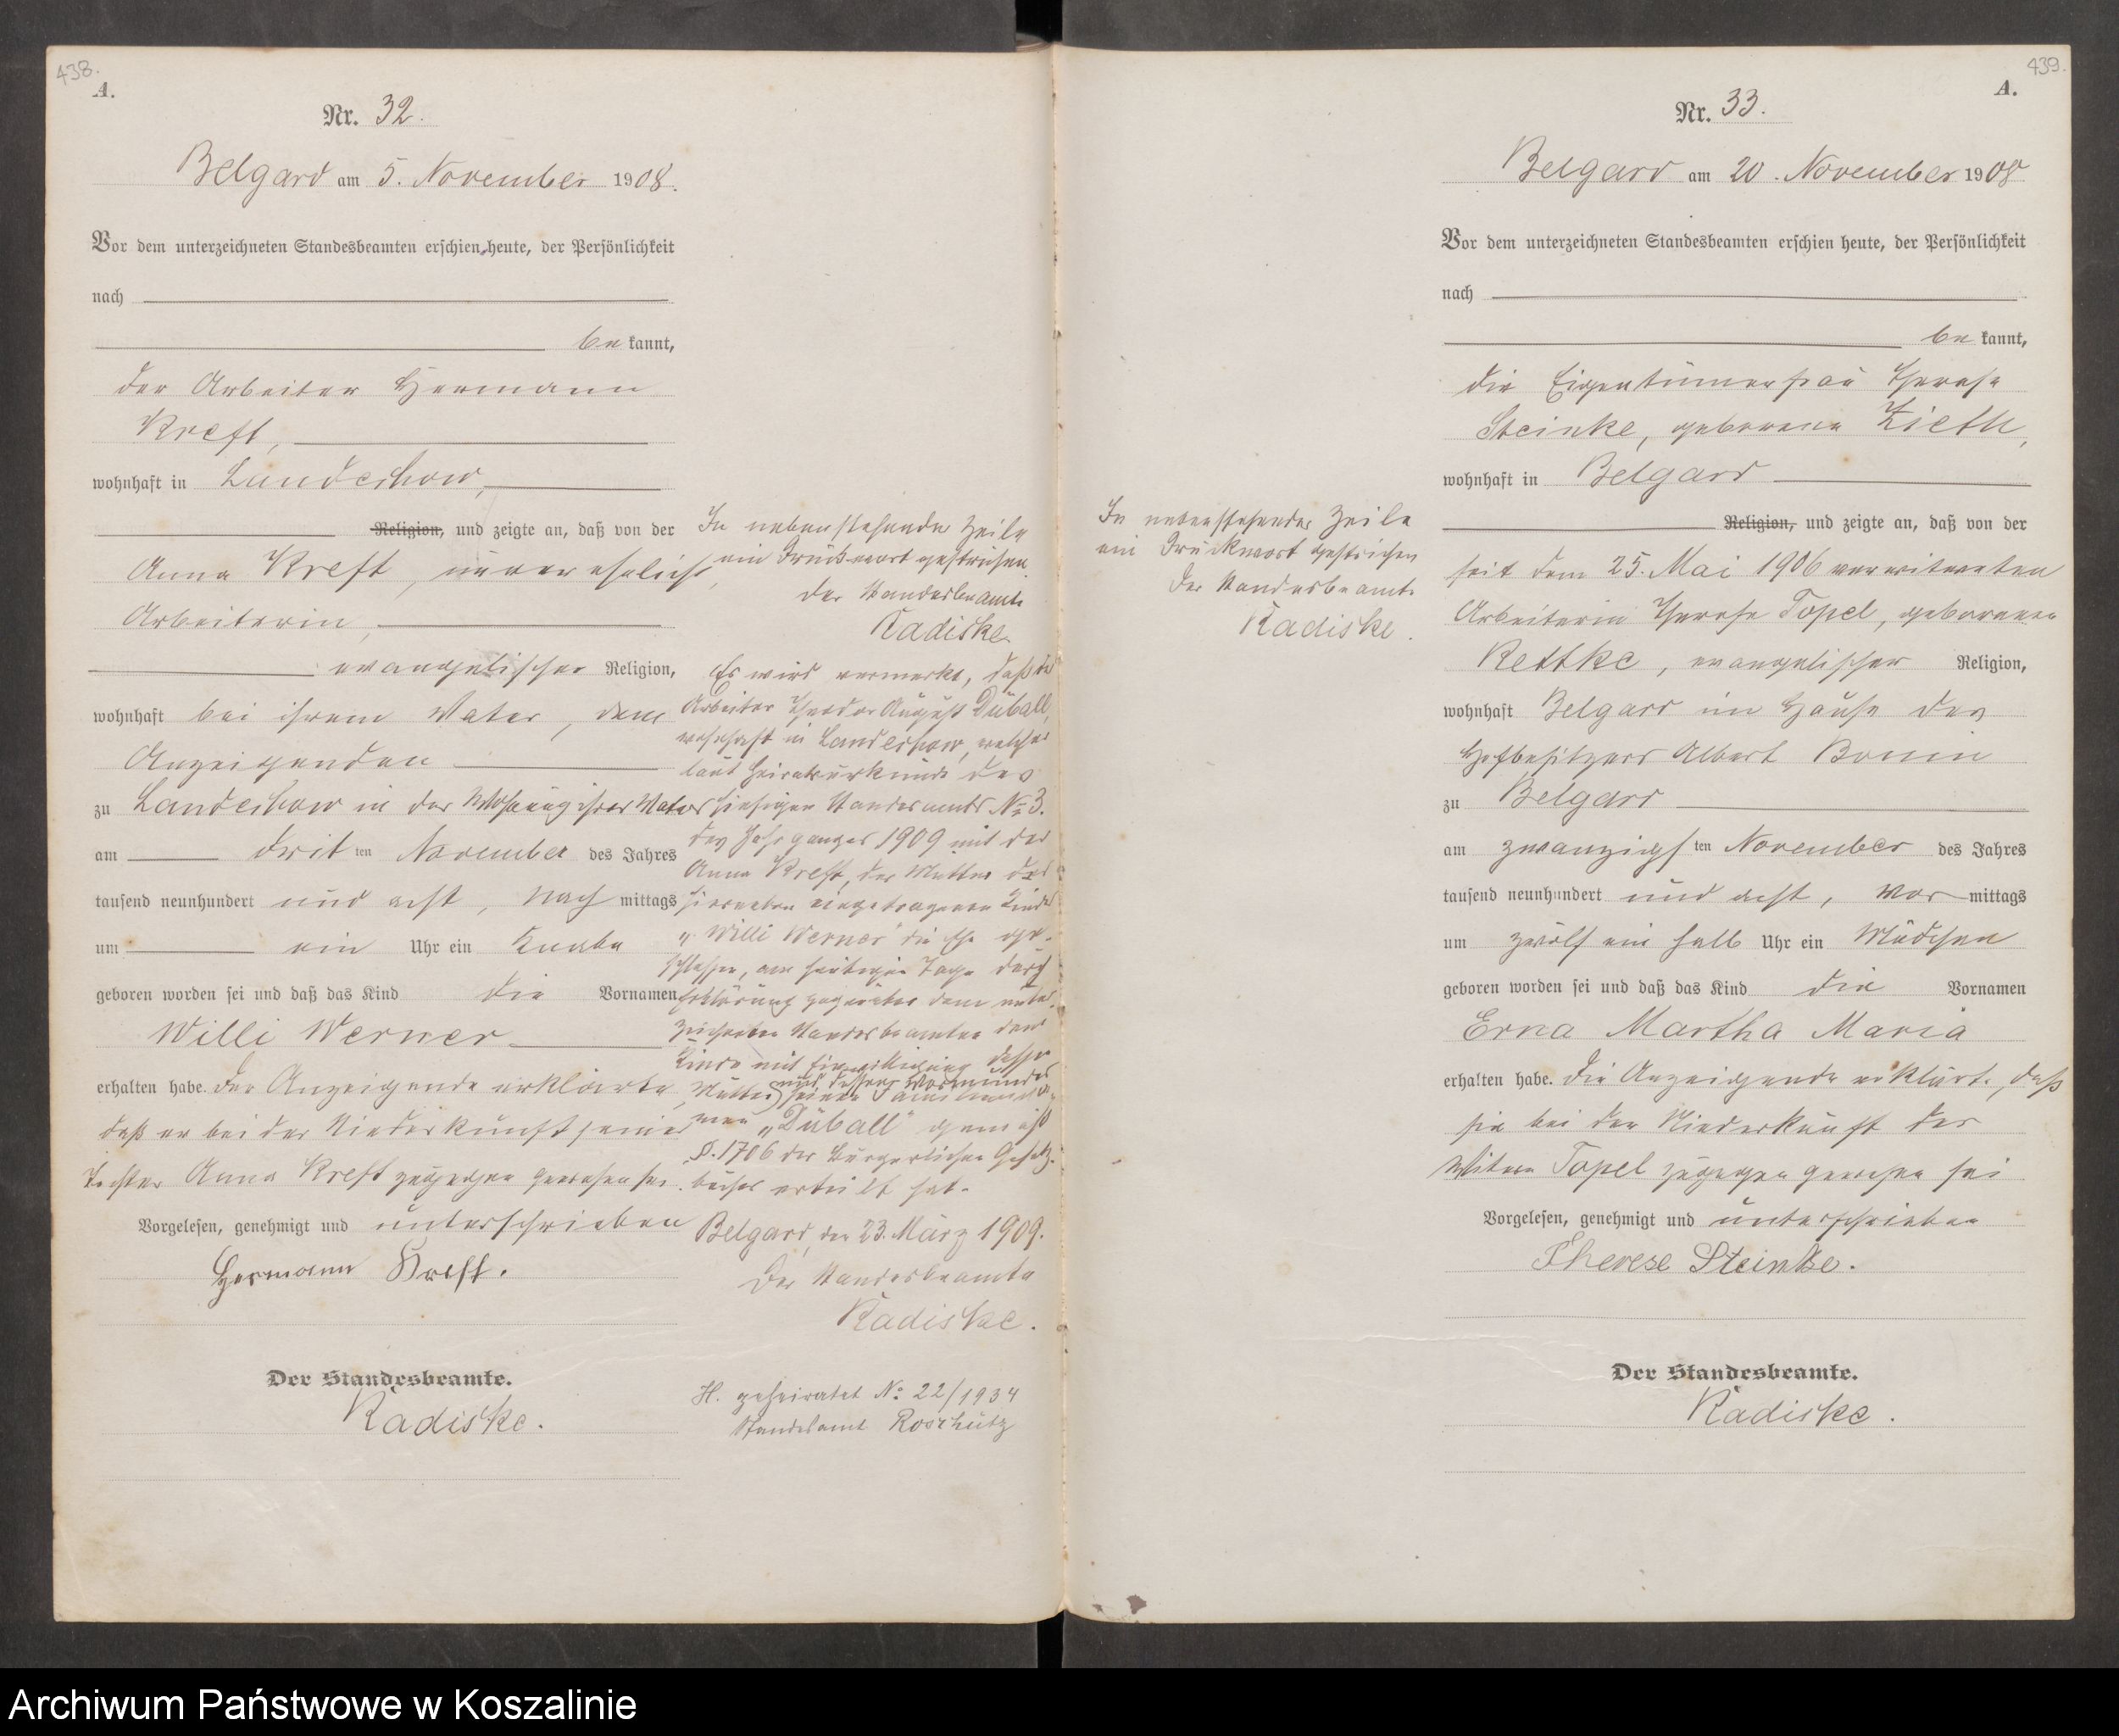 438.
A.
Nr. 32.
Belgard am 5. November 1908.
Vor dem unterzeichneten Standesbeamten erschien heute, der Persönlichkeit
nach
be kannt,
der Arbeiter Hermann
Kreft,
wohnhaft in Landechow,
Religion, und zeigte an, daß von der
Anna Kreft, unverehelicht,
Arbeiterin,
evangelischer Religion,
wohnhaft bei ihrem Vater, dem
Anzeigenden
zu Landechow in der Wohnung ihres Vaters
am drit ten November des Jahres
tausend neunhundert und acht, Nach mittags
um ein Uhr ein Knabe
geboren worden sei und daß das Kind die Vornamen
Willi Werner
erhalten habe. Der Anzeigende erklärte,
daß er bei der Niederkunft seiner
Tochter Anna Kreft zugegen gewesen sei.
Vorgelesen, genehmigt und unterschrieben
Hermann Kreft.
Der Standesbeamte.
Radiske.
In nebenstehender Zeile
ein Druckwort gestrichen.
Der Standesbeamte
Radiske.
Es wird vermerkt, daß der
Arbeiter Theodor August Duball,
wohnhaft in Landechow, welcher
laut Heiratsurkunde des
hiesigen Standesamts No 3.
des Jahrganges 1909 mit der
Anna Kreft, der Mutter des
hierneben eingetragenen Kindes
"Willi Werner" die Ehe ge-
schlossen, am heutigen Tage durch
Erklärung gegenüber dem unter-
zeichneten Standesbeamten dem
Kinde mit Einwilligung dessen
und dessen Vormundes
Mutter seinen Familienna-
men "Duball" gemäß
§. 1706 des Bürgerlichen Gesetz-
buches erteilt hat.
Belgard, den 23. März 1909.
Der Standesbeamte
Radiske.
H. geheiratet No 22/1934
Standesamt Roschütz
439.
A.
Nr. 33.
Belgard am 20. November 1908
Vor dem unterzeichneten Standesbeamten erschien heute, der Persönlichkeit
nach
be kannt,
die Eigentümerfrau Therese
Steinke, geborene Zieth,
wohnhaft in Belgard
Religion, und zeigte an, daß von der
seit dem 25. Mai 1906 verwitweten
Arbeiterin Therese Topel, geborenen
Rettke, evangelischer Religion,
wohnhaft Belgard im Hause des
Hofbesitzers Albert Bonin
zu Belgard
am zwanzigs ten November des Jahres
tausend neunhundert und acht, Vor mittags
um zwölf ein halb Uhr ein Mädchen
geboren worden sei und daß das Kind die Vornamen
Erna Martha Maria
erhalten habe. Die Anzeigende erklärte, daß
sie bei der Niederkunft der
Witwe Topel zugegen gewesen sei
Vorgelesen, genehmigt und unterschrieben
Therese Steinke.
Der Standesbeamte.
Radiske.
In nebenstehender Zeile
ein Druckwort gestrichen
Der Standesbeamte
Radiske.
Archiwum Państwowe w Koszalinie